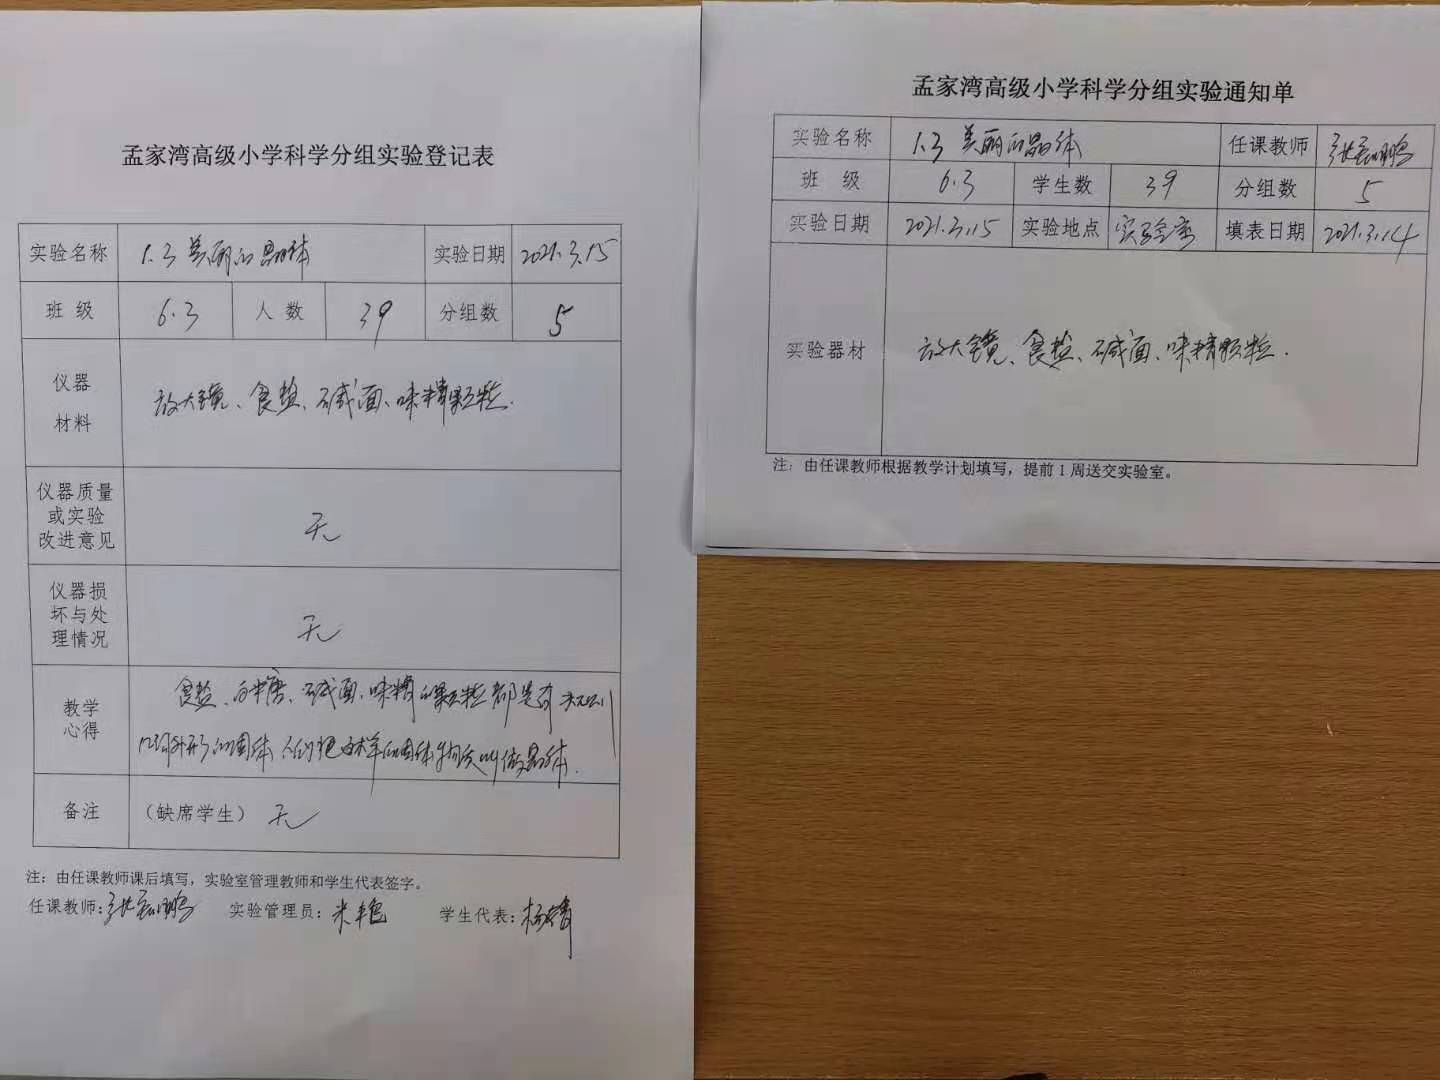 孟家湾高级小学科学分组实验登记表
实验名称 1.3 美丽的晶体 实验日期 2021.3.15
班 级 6.3 人 数 39 分组数 5
仪器
材料
放大镜、食盐、碱面、味精颗粒.
仪器质量
或实验
改进意见
无
仪器损
坏与处
理情况
无
教学
心得
食盐、白糖、碱面、味精的颗粒都是有规则
几何外形的固体,人们把这样的固体物质叫做晶体.
备注 （缺席学生） 无
注：由任课教师课后填写，实验室管理教师和学生代表签字。
任课教师： 实验管理员： 学生代表：
孟家湾高级小学科学分组实验通知单
实验名称 1.3 美丽的晶体 任课教师
班 级 6.3 学生数 39 分组数 5
实验日期 2021.3.15 实验地点 实验室 填表日期 2021.3.14
实验器材 放大镜、食盐、碱面、味精颗粒.
注：由任课教师根据教学计划填写，提前 1 周送交实验室。